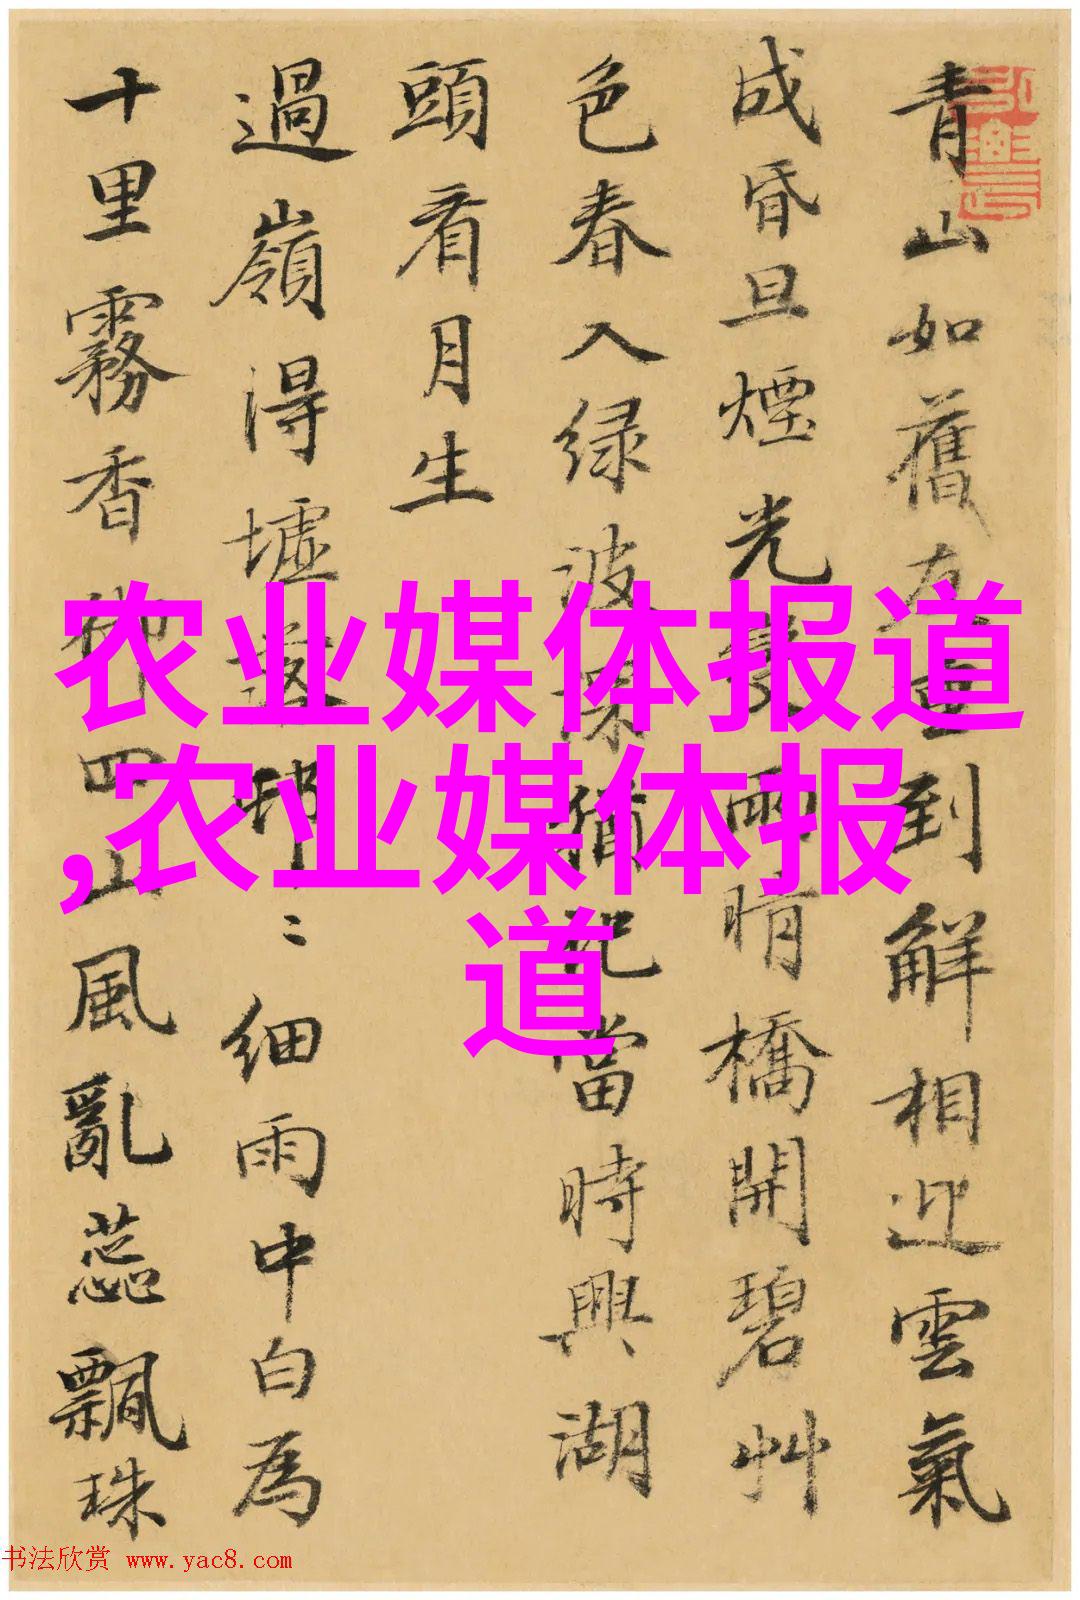 青山如舊友重到解相迎雲氣
成昏旦煙光變雨晴橋開碧艸
色春入绿波猶記當時興湖
頭看月生
過嶺得墟落邨〻細雨中白為
十里霧香拂四山風亂蕊飄珠
农业媒体报道
,农业媒体报
道
书法欣赏 www.yac8.com